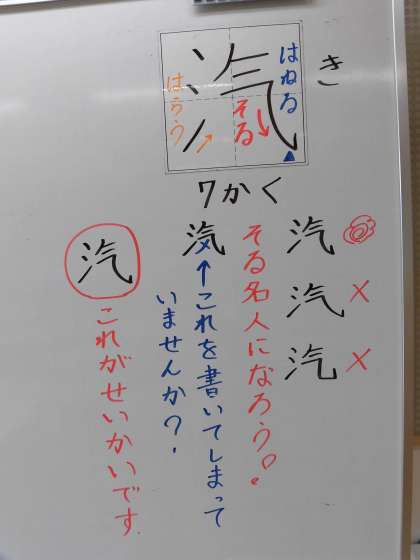 き
汽
はねる
そる
はらう
7かく
汽
汽 ×
汽 ×
そる名人になろう。
汽
×←これを書いてしまって
いませんか?
汽
これがせいかいです